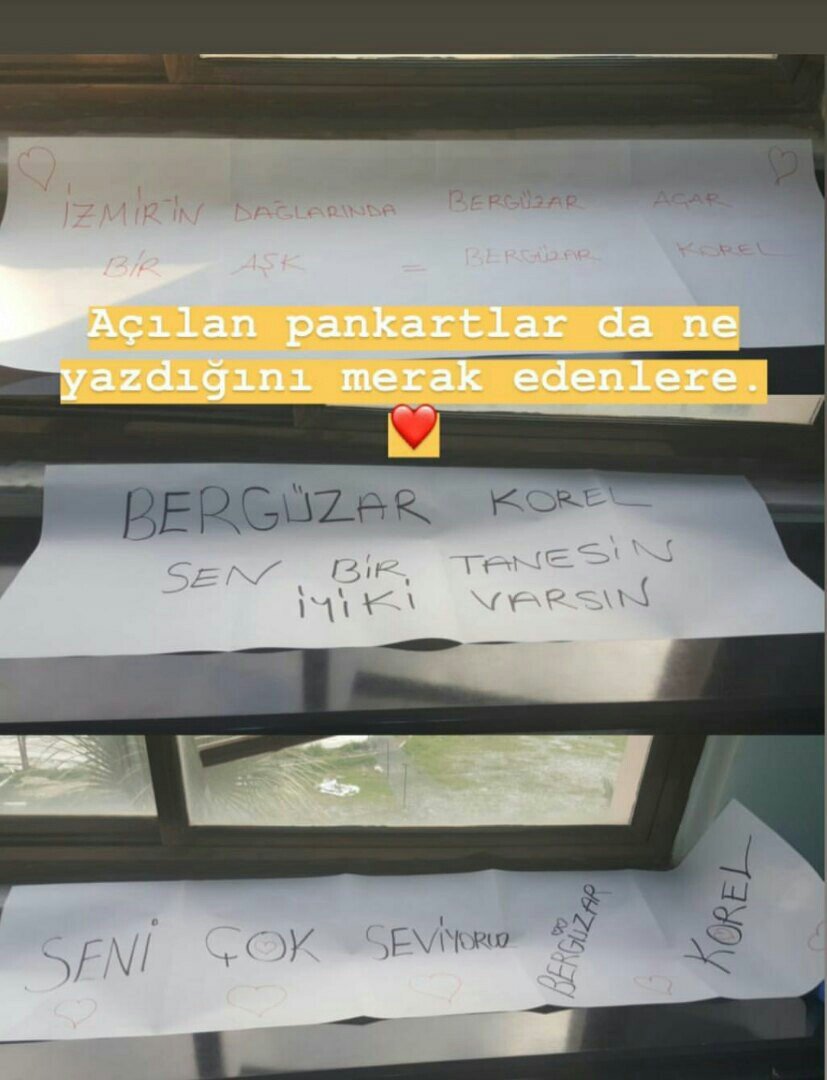 İZMİR'İN DAĞLARINDA BERGÜZAR AÇAR
BİR AŞK = BERGÜZAR KOREL
Açılan pankartlar da ne
yazdığını merak edenlere.
BERGÜZAR KOREL
SEN BİR TANESİN
İYİKİ VARSIN
SENİ ÇOK SEVİYORUZ BERGÜZAR KOREL